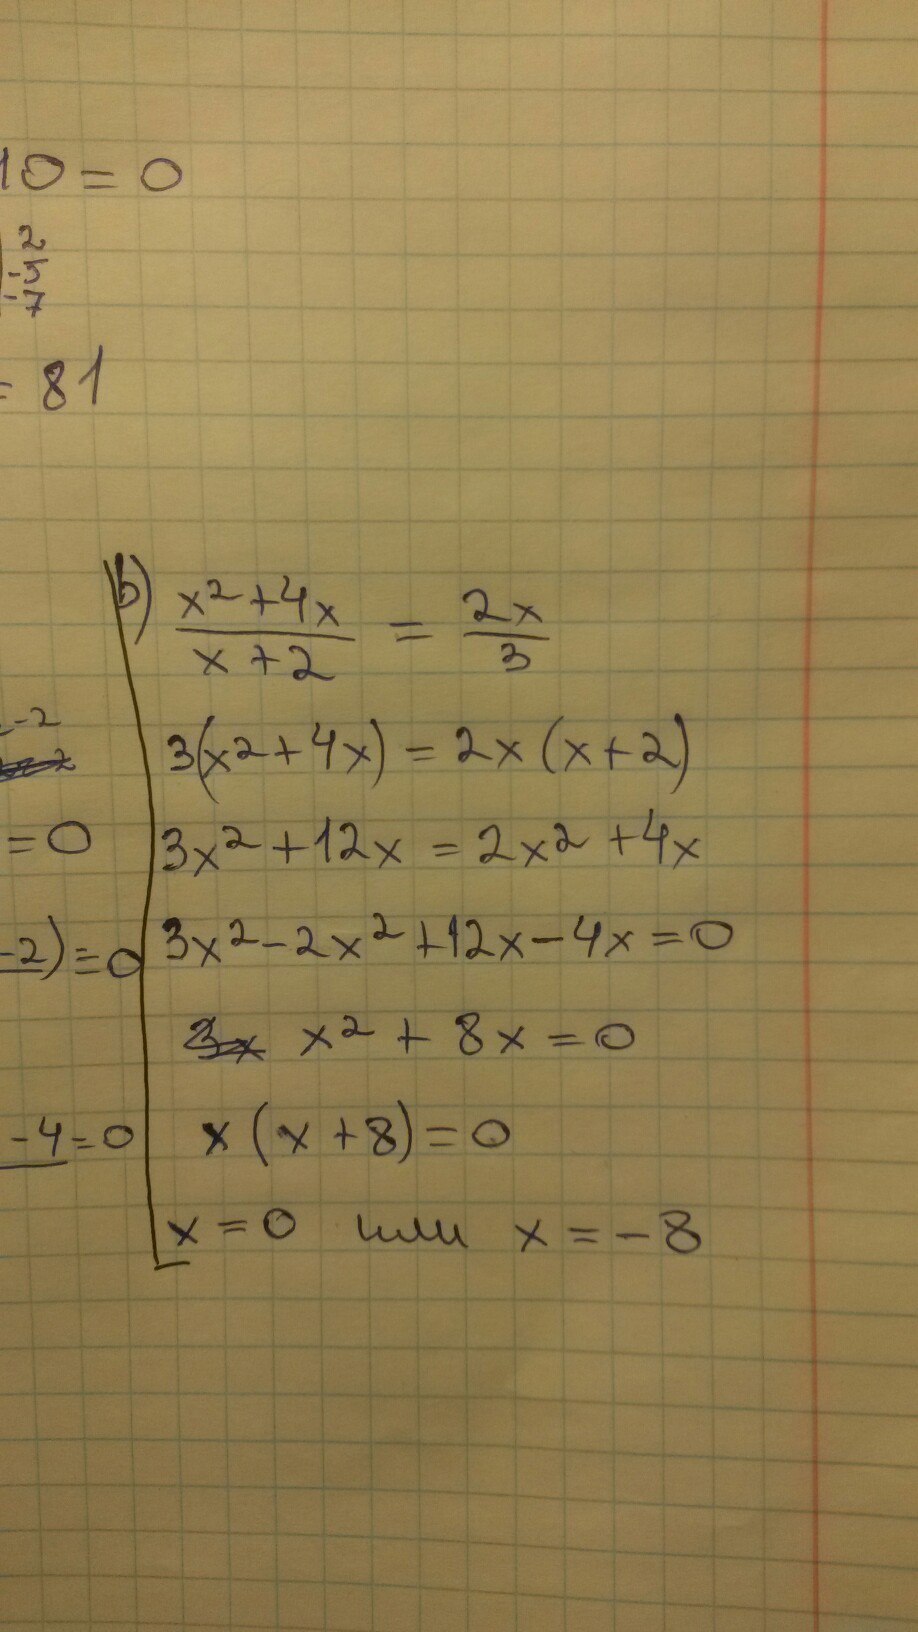 10 = 0
2
-5
-7
= 81
b) \frac{x² + 4x}{x + 2} = \frac{2x}{3}
-2
3(x² + 4x) = 2x (x + 2)
= 0
3x² + 12x = 2x² + 4x
-2) = 0
3x² - 2x² + 12x - 4x = 0
x² + 8x = 0
-4 = 0
x (x + 8) = 0
x = 0 или x = -8